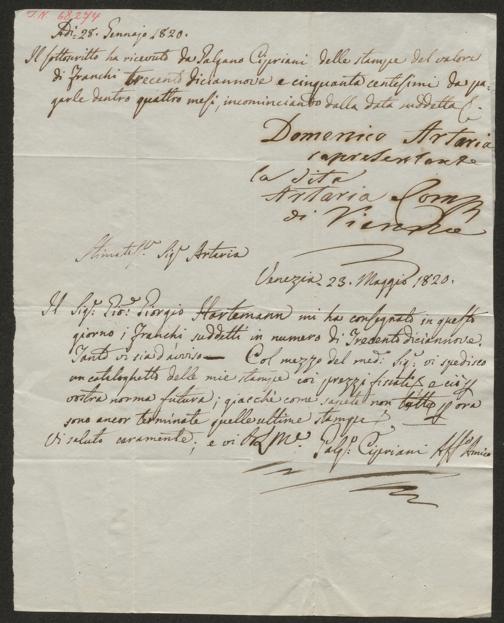 I.N. 68274
Adì. 28. Gennajo 1820.
Il sottoscritto ha ricevuto da Galgano Cipriani delle stampe del valore
di franchi trecento diciannove e cinquanta centesimi da pa-
garle dentro quattro mesi, incominciando dalla data suddetta
Domenico Artaria
rapresentante
la Dita
Artaria Comp
di Vienna
Stimatis.º Sigr Artaria
Venezia 23. Maggio 1820.
Il Sigr. Gio. Giorgio Hartemann mi ha consegnato in questo
giorno i franchi suddetti in numero di Trecento diciannove.
Tanto vi sia d'avviso — Col mezzo del med.º Sigr. vi spedisco
un cataloghetto delle mie stampe coi prezzi fissati, e ciò per
vostra norma futura; giacchè come sapete non tutte per ora
sono ancor terminate quelle ultime stampe
Vi saluto caramente, e vi
Galg.º Cipriani Aff.mo Amico